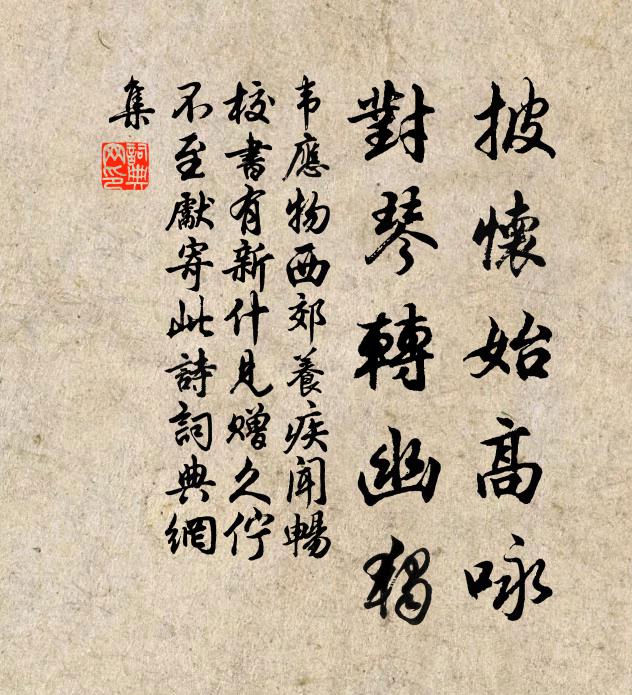 披懷始高咏
對琴轉幽獨
韦應物西郊養疾聞暢
校書有新什見赠久佇
不至獻寄此詩詞典網
集
詞典
网印